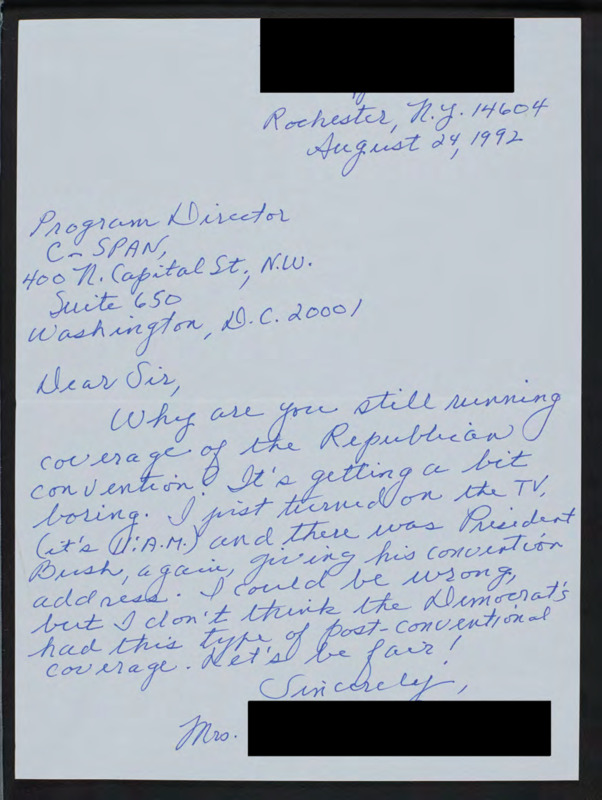 Rochester, N.Y. 14604
August 24, 1992
Program Director
C-SPAN,
400 N. Capital St., N.W.
Suite 650
Washington, D.C. 20001
Dear Sir,
Why are you still running
coverage of the Republican
convention? It's getting a bit
boring. I just turned on the TV,
(it's 11:A.M.) and there was President
Bush, again, giving his convention
address. I could be wrong,
but I don't think the Democrat's
had this type of post-conventional
coverage. Let's be fair!
Sincerely,
Mrs.